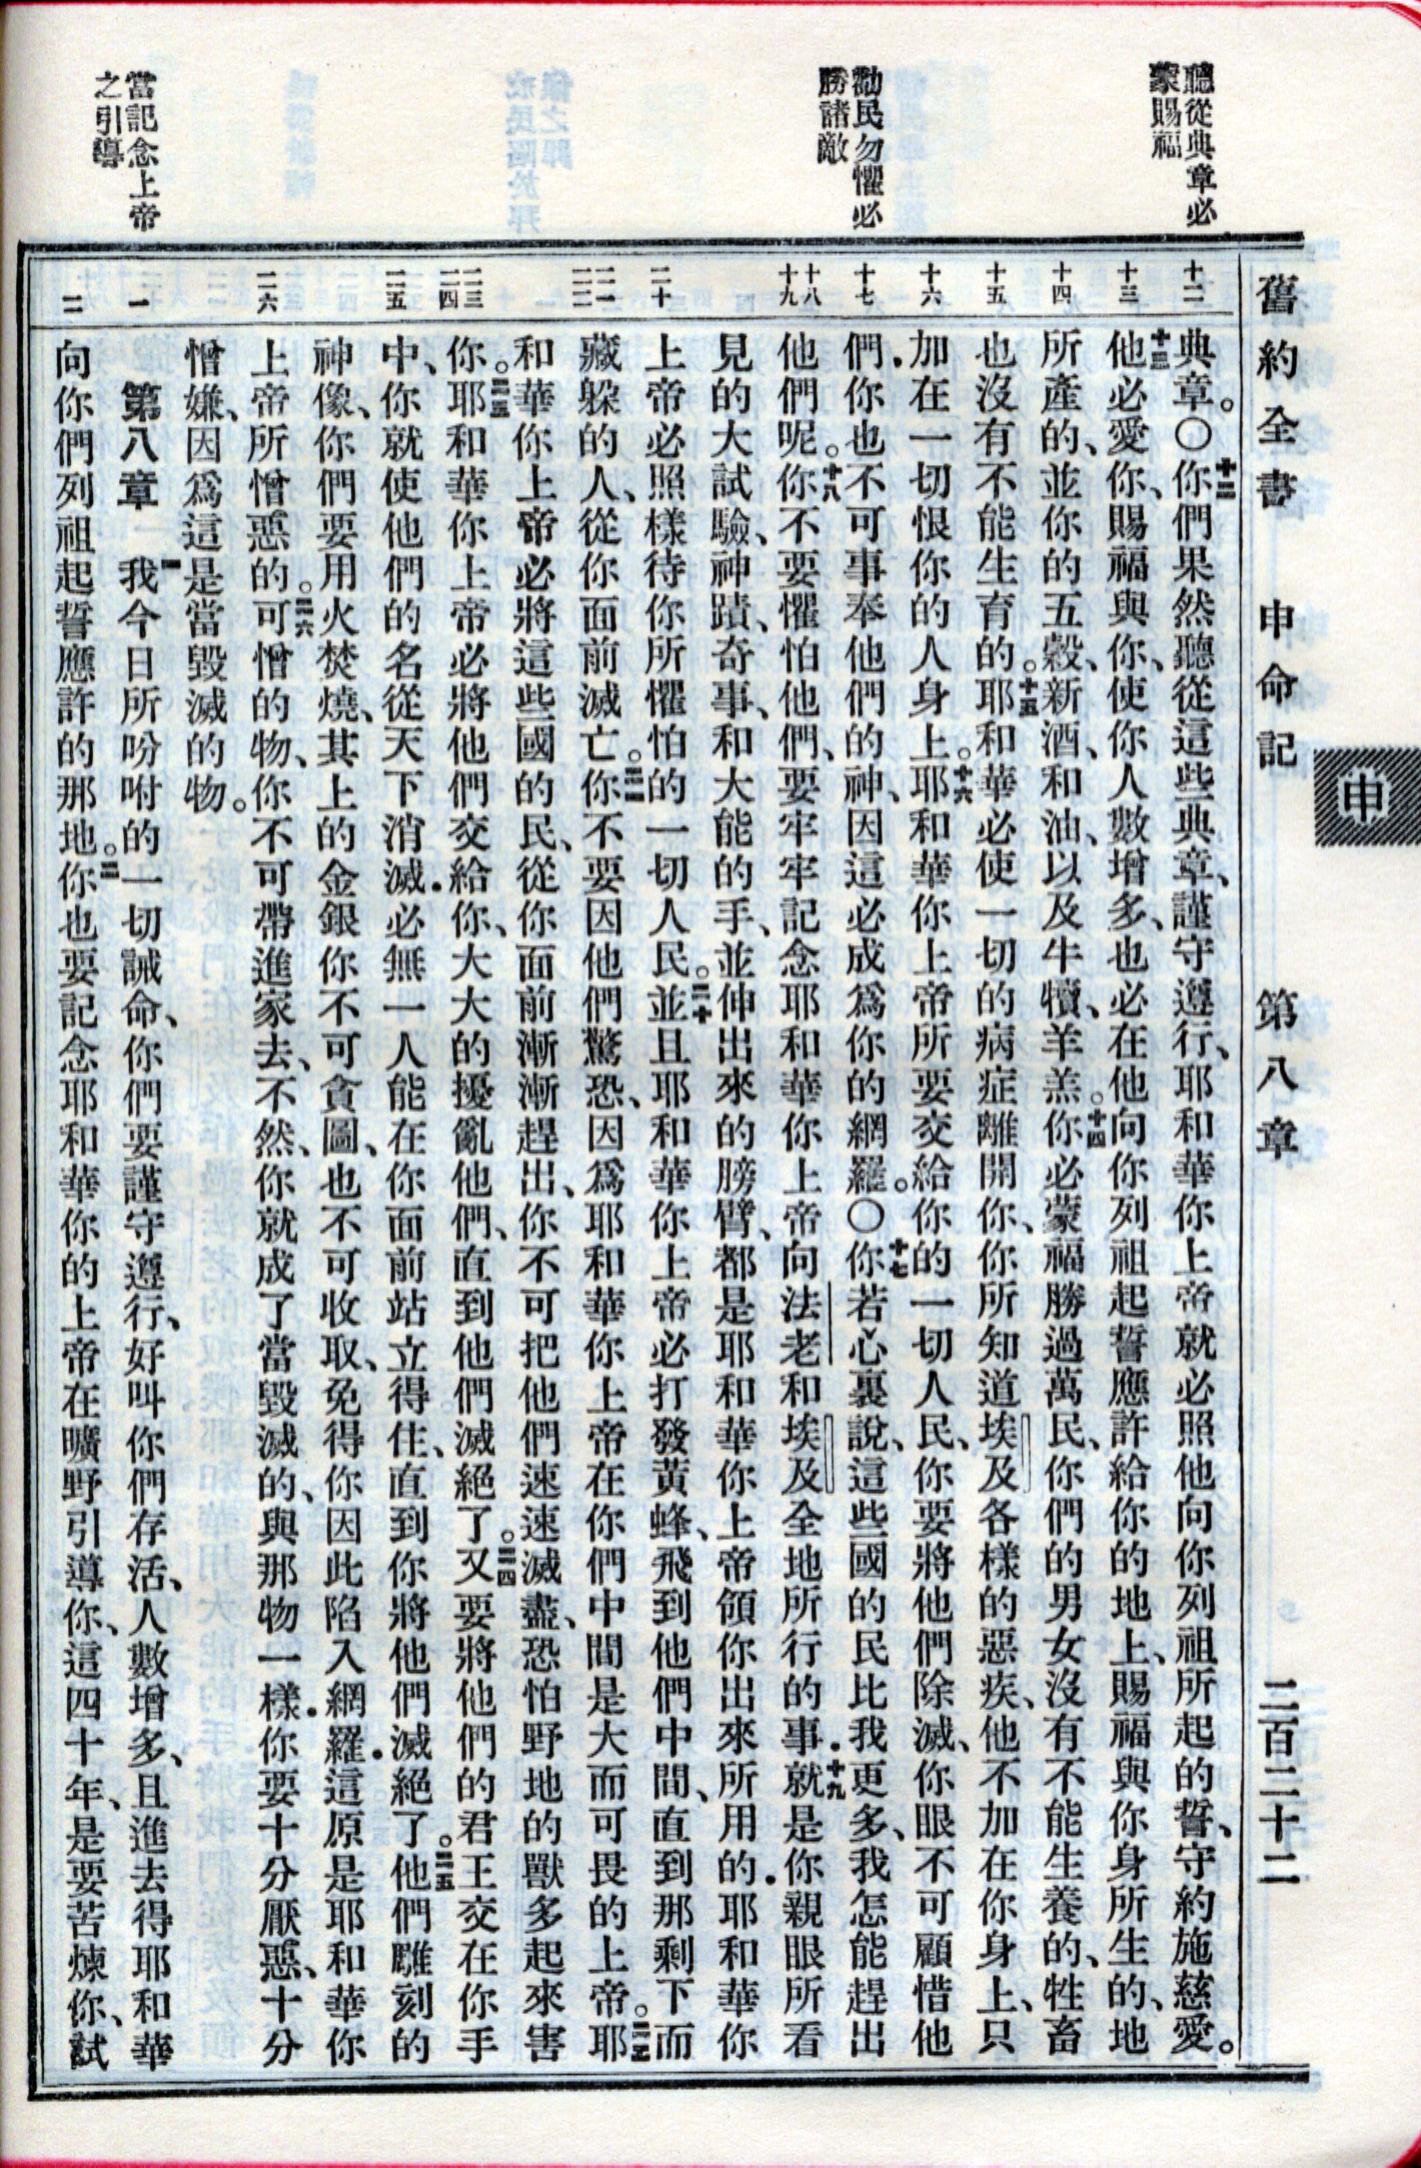 聽從典章必
蒙賜福
勸民勿懼必
勝諸敵
當記念上帝
之引導
舊約全書 申命記 第八章 二百二十二
申
十二
十三
十四
十五
十六
十七
十八
十九
二十
二一
二二
二三
二四
二五
二六
一
二
典章。〇十二你們果然聽從這些典章、謹守遵行、耶和華你上帝就必照他向你列祖所起的誓、守約施慈愛。
十三他必愛你、賜福與你、使你人數增多、也必在他向你列祖起誓應許給你的地上、賜福與你身所生的、地
所產的、並你的五穀、新酒、和油、以及牛犢、羊羔。十四你必蒙福勝過萬民、你們的男女沒有不能生養的、牲畜
也沒有不能生育的。十五耶和華必使一切的病症離開你、你所知道埃及各樣的惡疾、他不加在你身上、只
加在一切恨你的人身上。十六耶和華你上帝所要交給你的一切人民、你要將他們除滅、你眼不可顧惜他
們．你也不可事奉他們的神、因這必成爲你的網羅。〇十七你若心裏說、這些國的民比我更多、我怎能趕出
他們呢。十八你不要懼怕他們、要牢牢記念耶和華你上帝向法老和埃及全地所行的事．十九就是你親眼所看
見的大試驗、神蹟、奇事、和大能的手、並伸出來的膀臂、都是耶和華你上帝領你出來所用的．耶和華你
上帝必照樣待你所懼怕的一切人民。二十並且耶和華你上帝必打發黃蜂、飛到他們中間、直到那剩下而
藏躲的人、從你面前滅亡。二一你不要因他們驚恐、因爲耶和華你上帝在你們中間是大而可畏的上帝。二二耶
和華你上帝必將這些國的民、從你面前漸漸趕出、你不可把他們速速滅盡、恐怕野地的獸多起來害
你。二三耶和華你上帝必將他們交給你、大大的擾亂他們、直到他們滅絕了。二四又要將他們的君王交在你手
中、你就使他們的名從天下消滅．必無一人能在你面前站立得住、直到你將他們滅絕了。二五他們雕刻的
神像、你們要用火焚燒、其上的金銀你不可貪圖、也不可收取、免得你因此陷入網羅．這原是耶和華你
上帝所憎惡的。二六可憎的物、你不可帶進家去、不然、你就成了當毀滅的、與那物一樣．你要十分厭惡、十分
憎嫌、因爲這是當毀滅的物。
第八章 一我今日所吩咐的一切誡命、你們要謹守遵行、好叫你們存活、人數增多、且進去得耶和華
向你們列祖起誓應許的那地。二你也要記念耶和華你的上帝在曠野引導你、這四十年、是要苦煉你、試